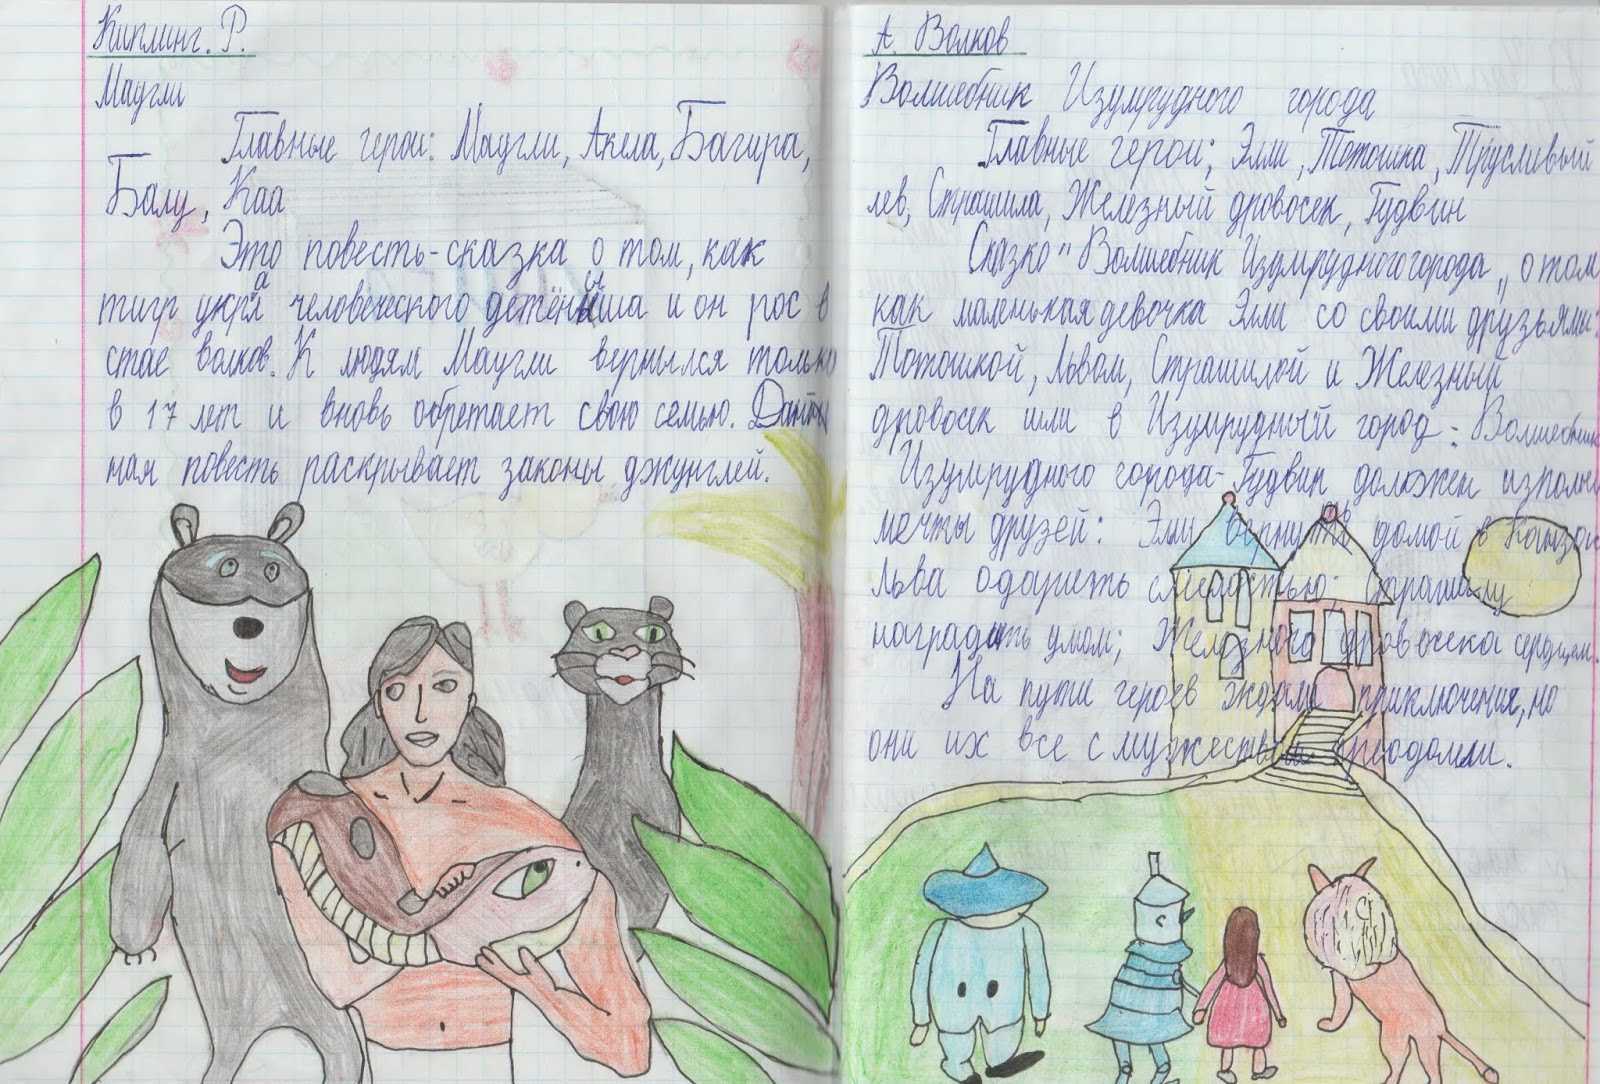 Киплинг. Р.
Маугли
Главные герои: Маугли, Акела, Багира,
Балу, Каа
Это повесть-сказка о том, как
тигр украл человеческого детёныша и он рос в
стае волков. К людям Маугли вернылся только
в 17 лет и вновь обретает свою семью. Данн
ная повесть раскрывает законы джунглей.
А. Волков
Волшебник Изумрудного города
Главные герои; Элли, Тотошка, Трусливый
лев, Страшила, Железный дровосек, Гудвин
Сказко "Волшебник Изумрудного города,, о том
как маленькая девочка Элли со своими друзьями:
Тотошкой, Львом, Страшилой и Железный
дровосек шли в Изумрудный город. Волшебник
Изумрудного города-Гудвин должен исполни
мечты друзей: Элли вернуть домой в Канзас
льва одарить смелостью; Страшилу
наградить умом; Железного дровосека сердцем.
На пути героев ждали приключения, но
они их все с мужеством преодолели.